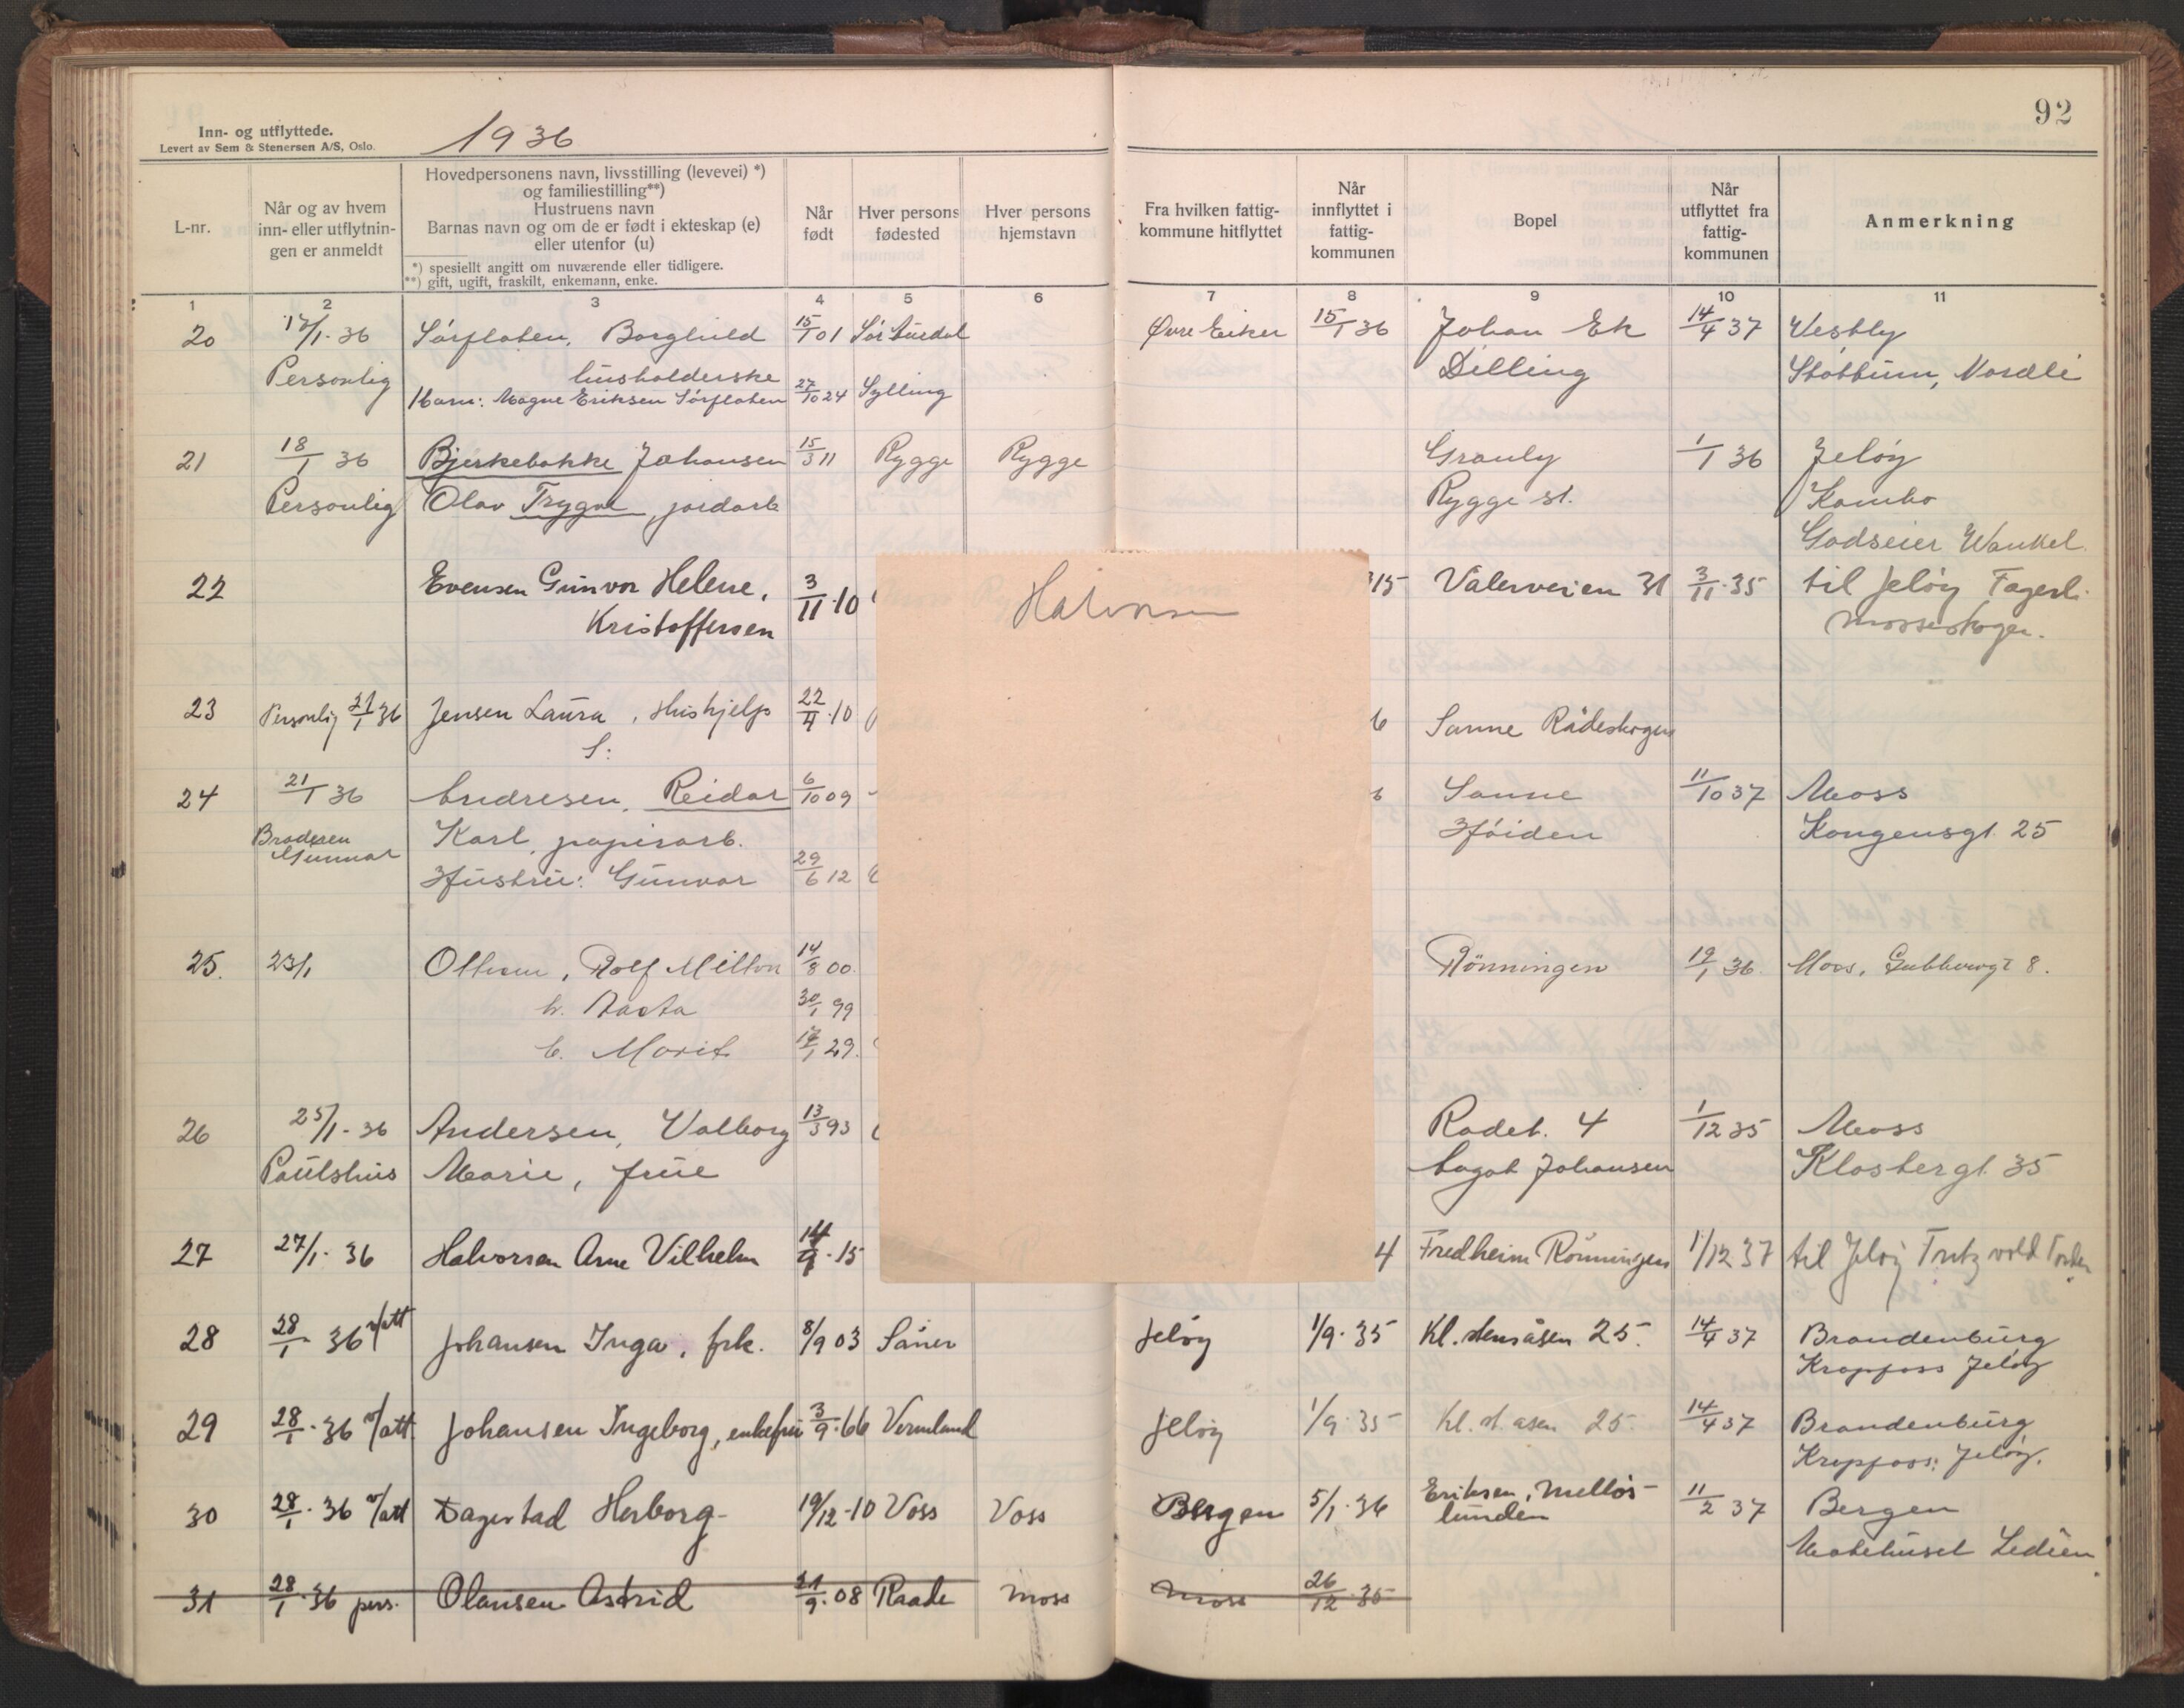 Inn- og utflyttede.
Levert av Sem & Stenersen A/S, Oslo.
1936
92
L-nr.
Når og av hvem
inn- eller utflytnin-
gen er anmeldt
Hovedpersonens navn, livsstilling (levevei) *)
og familiestilling**)
Hustruens navn
Barnas navn og om de er født i ekteskap (e)
eller utenfor (u)
*) spesiellt angitt om nuværende eller tidligere.
**) gift, ugift, fraskilt, enkemann, enke.
Når
født
Hver persons
fødested
Hver persons
hjemstavn
Fra hvilken fattig-
kommune hitflyttet
Når
innflyttet i
fattig-
kommunen
Bopel
Når
utflyttet fra
fattig-
kommunen
Anmerkning
1 2 3 4 5 6 7 8 9 10 11
20 17/1-36 Sørfloten, Borghild 15/1 01 Sør Aurdal Øvre Eiker 15/1 36 Johan Ek 14/4 37 Vestby
Personlig husholderske Dilling Støttum, Nordli
Barn: Magne Eriksen Sørfloten 27/10 24 Sylling
21 18/1 36 Bjerkebakke Johansen 15/3 11 Rygge Rygge Granly 1/1 36 Jeløy
Personlig Olav Trygve, jordarb Rygge st. Kambo
Godseier Wankel
22 Evensen Gunvor Helene, 3/11-10 315 Valerveien 31 3/11-35 til Jeløy Fagerli
Kristoffersen Mosseskogen.
23 Personlig 21/1 36 Jensen Laura, Hushjelp 22/4-10 6 Sanne Rådeskogen
S:
24 21/1 36 Andresen, Reidar 6/10 09 6 Sanne 11/10 37 Moss
Broderen
Gunnar Karl, papirarb. Høiden Kongensgt 25
Hustru: Gunvor 29/6 12
25. 23/1 Ottesen, Rolf Milton 14/8 00. Rönningen 19/1 36. Moss, 8.
h. Aasta 30/1 99
b. Marit 29.
26 25/1-36 Andersen, Valborg 13/3 93 Radeb. 4 1/12 35 Moss
Paulshus Marie, frue Agot Johansen Klostergt 35
27 27/1-36 Halvorsen Arne Vilhelm 14/9-15 4 Fredheim Rönningen 1/12 37 til Jeløy
Halvorsen
28 28/1-36 v/att Johansen Inga, frk. 8/9 03 Såner Jeløy 1/9-35 Kl. stensåsen 25. 14/4 37 Brandenburg
Kropfoss Jeløy
29 28/1-36 v/att Johansen Ingeborg, enkefru 3/9-66 Vermland Jeløy 1/9-35 Kl. st. asen 25. 14/4 37 Brandenburg
Kropfoss: Jeløy.
30 28/1-36 v/att Dagestad Herborg 19/12-10 Voss Voss Bergen 5/1-36 Eriksen, Melløs- 11/2 37 Bergen
lunden Motehuset
31 28/1-36 pers. Olausen Astrid 21/9-08 Raade Moss Moss 26/12-35